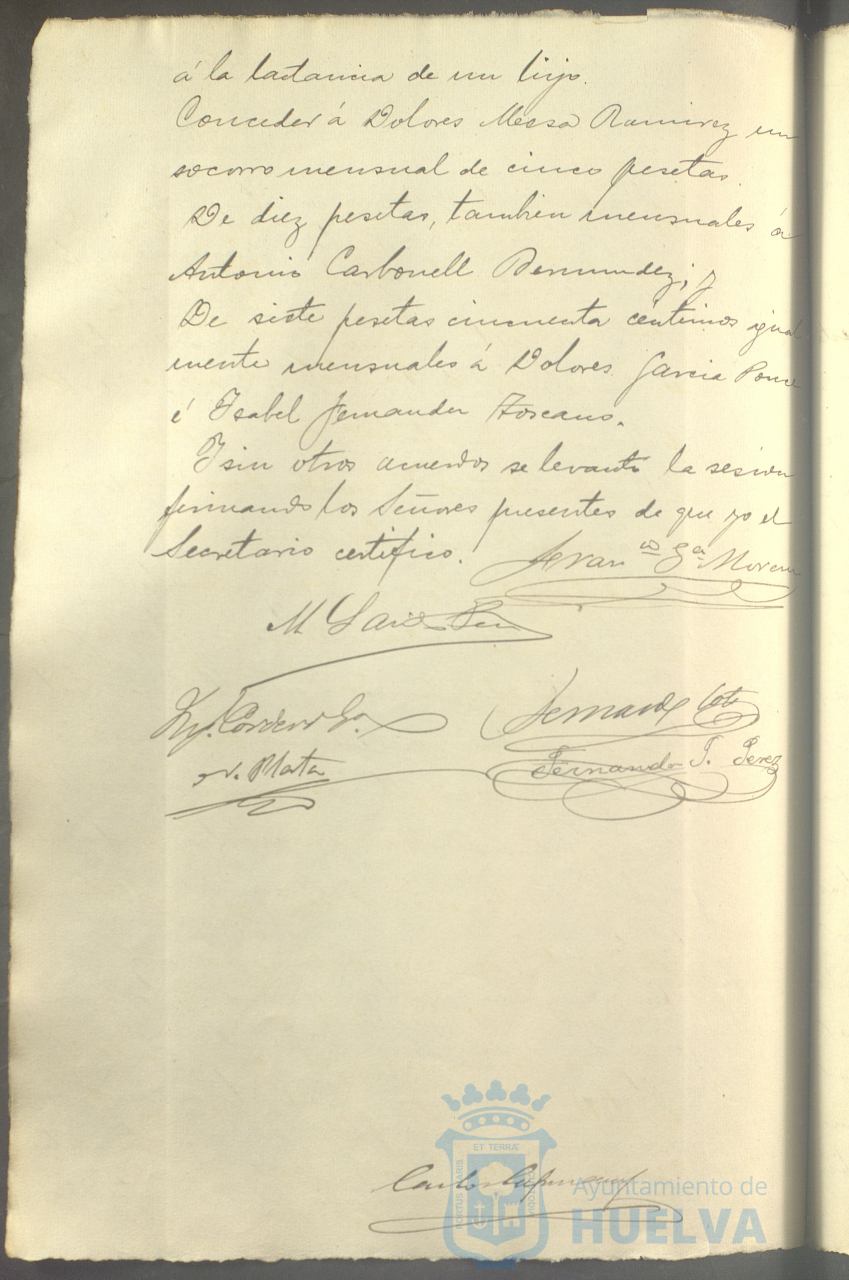 á la lactancia de un hijo.
Conceder á Dolores Messa Ramirez un
socorro mensual de cinco pesetas.
De diez pesetas, tambien mensuales á
Antonio Carbonell Bermudez; y
De siete pesetas cincuenta centimos igual
mente mensuales á Dolores Garcia Ponce
é Isabel Fernandez Toscano.
Y sin otros acuerdos se levantó la sesion
firmando los Señores presentes de que yo el
Secretario certifico.
Fran<sup>co</sup> Gª Moreno
M
Cordero Gª
Fernando
Plata
Fernando T. Perez
ET TERRÆ
Carlos
Ayuntamiento de
HUELVA